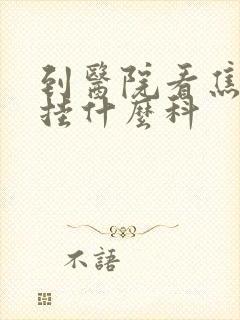 到醫院看焦
挂什麼科
不語